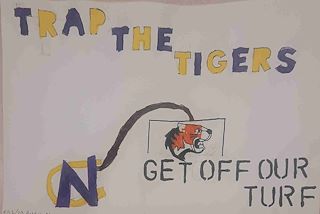 TRAP THE TIGERS
CN
GET OFF OUR
TURF